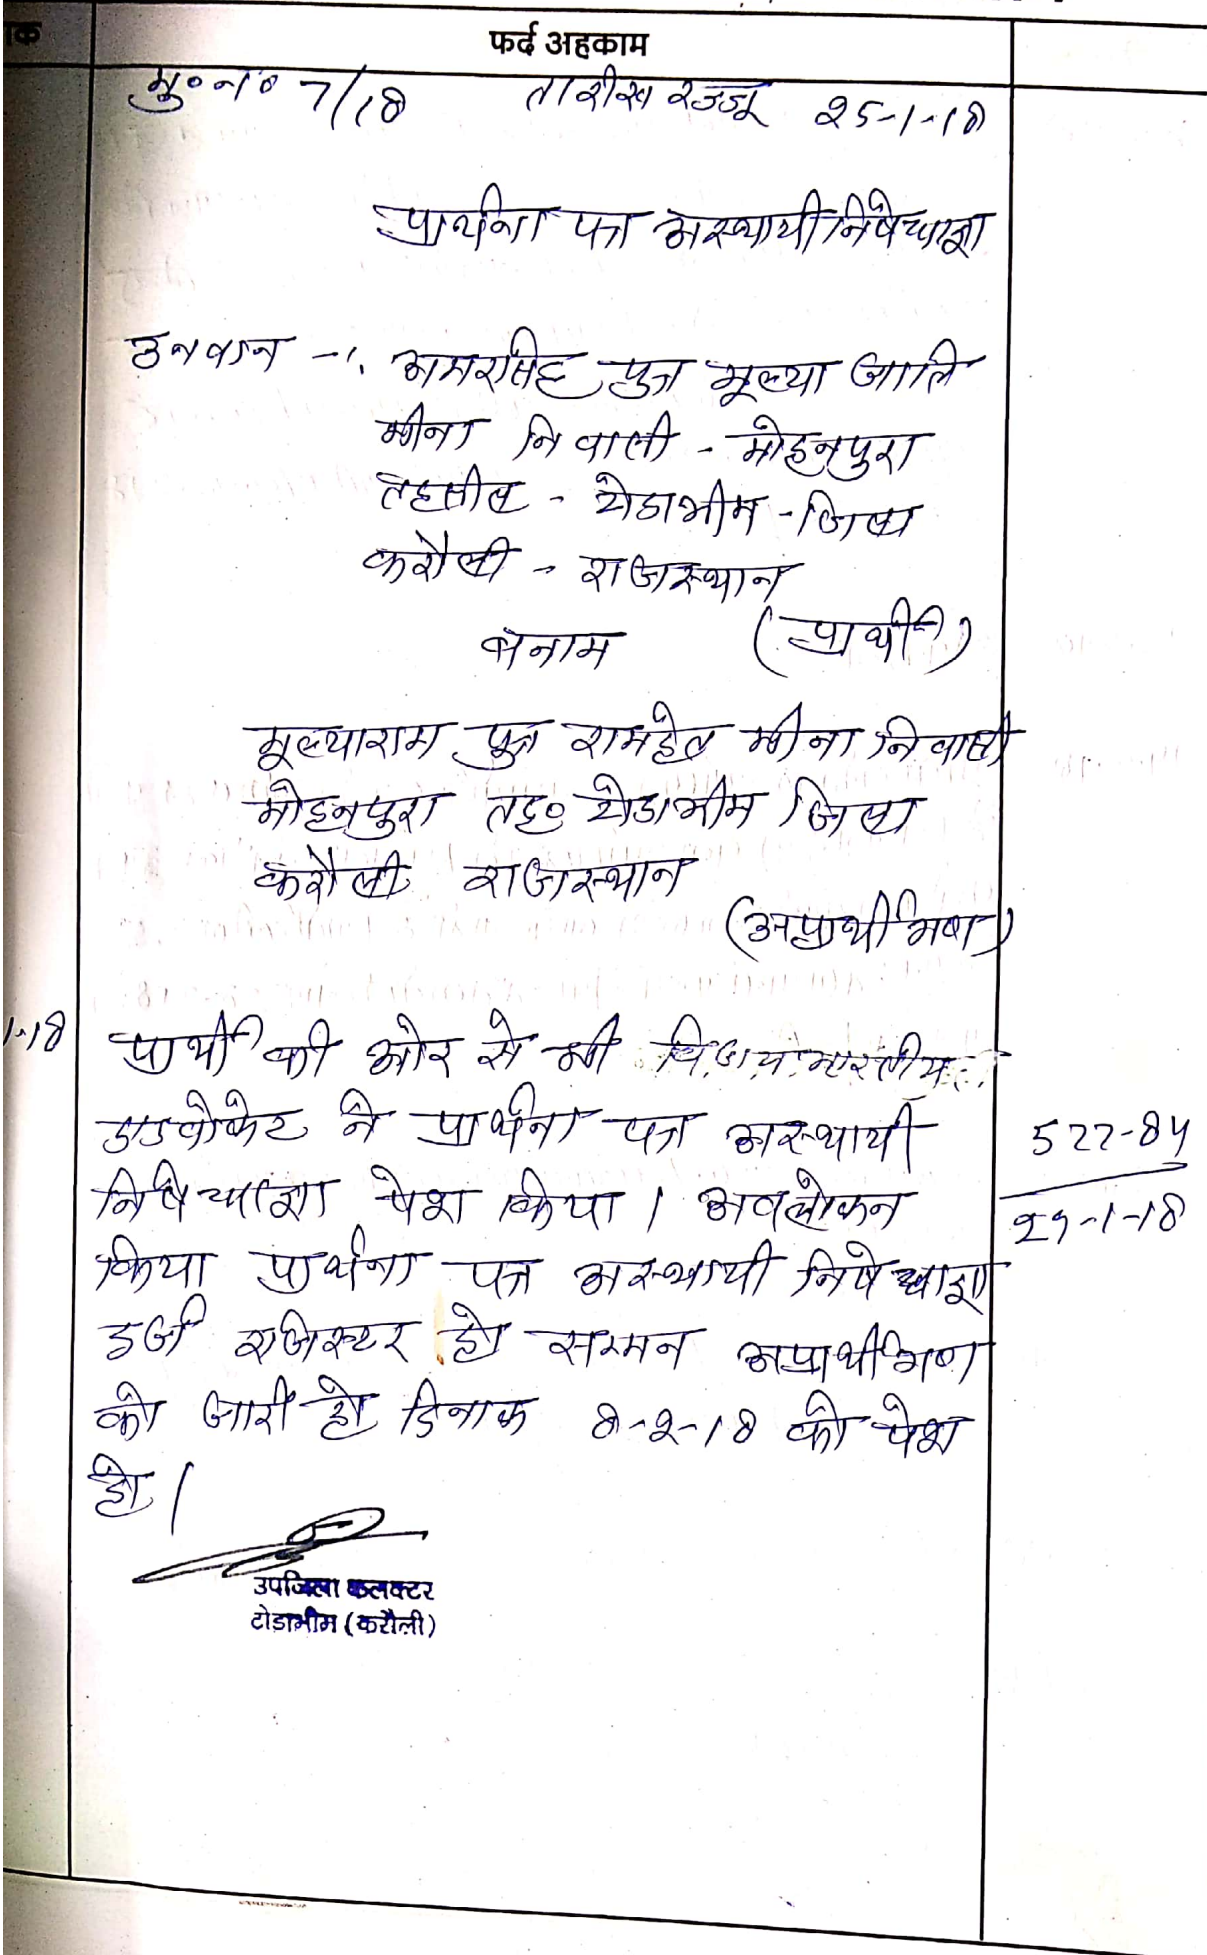 फर्द अहकाम
मु०न० 7/18 तारीख रज्जू 25-1-18
प्रार्थना पत्र अस्थायी निषेधाज्ञा
उनवान -: अमरसिंह पुत्र मूल्या जाति
मीना निवासी - मोहनपुरा
तहसील - टोडाभीम - जिला
करौली - राजस्थान
बनाम (प्रार्थी)
मूल्याराम पुत्र रामहेत मीना निवासी
मोहनपुरा तह० टोडाभीम जिला
करौली राजस्थान
(अप्रार्थीगण)
1-18 प्रार्थी की ओर से श्री विजय भारतीय
एडवोकेट ने प्रार्थना पत्र अस्थायी
निषेधाज्ञा पेश किया । अवलोकन
किया प्रार्थना पत्र अस्थायी निषेधाज्ञा
दर्ज रजिस्टर हो सम्मन अप्रार्थीगण
को जारी हो दिनांक 8-2-18 को पेश
हो ।
522-84
29-1-18
उपजिला कलक्टर
टोडाभीम (करौली)